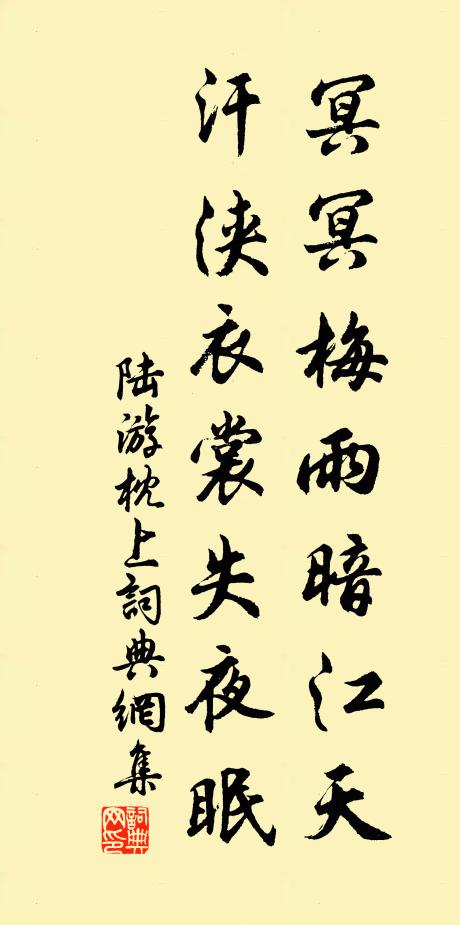 冥冥梅雨暗江天
汗浹衣裳失夜眠
陆游枕上詞典網集
詞典网印